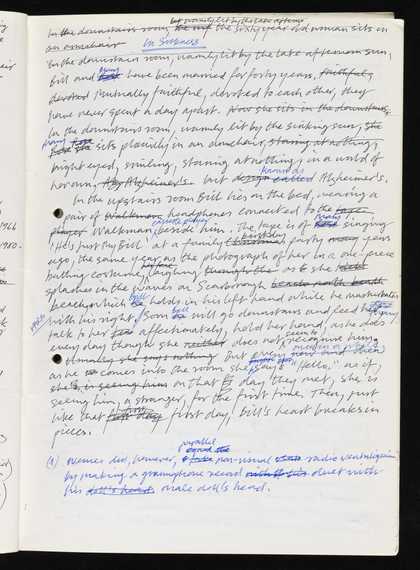 but warmly lit by the late afternoon
In the downstairs room, the sixty year old woman sits in
an armchair
In Sickness
In the downstairs room, warmly lit by the late afternoon sun,
Bill and have been married for forty years, faithful,
devoted mutually faithful, devoted to each other, they
have never spent a day apart. Now she sits in the downstairs
In the downstairs room, warmly lit by the sinking sun, she
sits placidly in an armchair, staring at nothing,
bright eyed, smiling, staring at nothing; in a world of
her own, Alzheimer's. but called Alzheimer's.
In the upstairs room Bill lies on the bed, wearing a
pair of Walkman headphones connected to the
player Walkman beside him. The tape is of singing
'He's just my Bill' at a family birthday party many years
ago, the same year as the photograph of her in a one-piece
bathing costume, laughing as she
splashes in the waves on Scarborough beach north beach
beach, which he holds in his left hand while he masturbates
with his right. Soon Bill will go downstairs and feed her,
talk to her affectionately, hold her hand, as he does
every day though she neither does not recognise him,
usually she says nothing but every now and then
as he comes into the room she says "Hello," as if,
she is seeing him on that day they met, she is
seeing him, a stranger, for the first time. Then, just
like that first day, Bill's heart breaks in
pieces.
parallel
(1) did, however, non-visual radio ventriloquism
by making a gramophone record duet with
his doll's heart male doll's head.
1966
1980